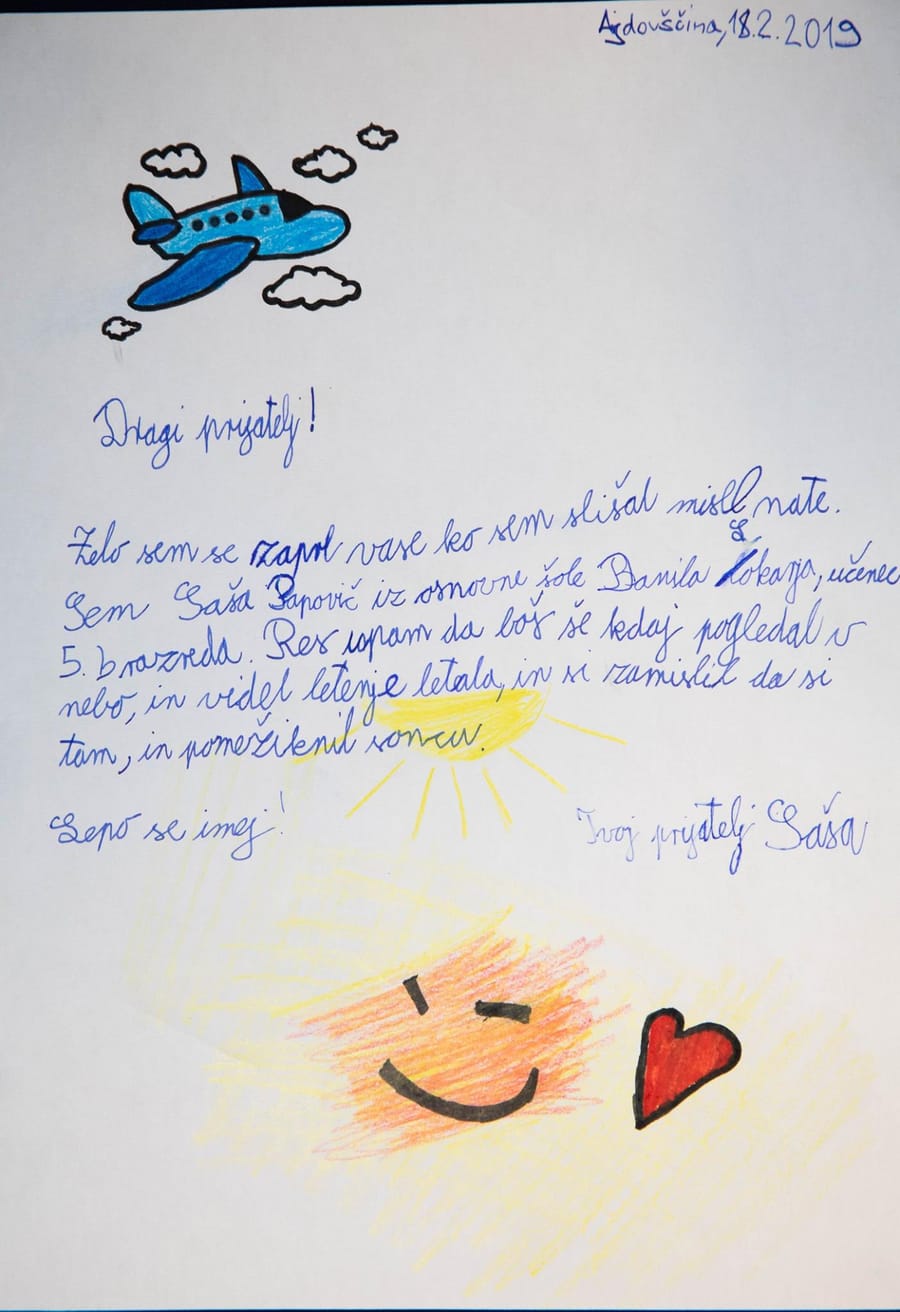 Ajdovščina, 18.2.2019
Dragi prijatelj!
Zelo sem se zaprl vase ko sem slišal misel nate.
Sem Saša Papovič iz osnovne šole Danila Lokarja, učenec
5. b razreda. Res upam da boš še kdaj pogledal v
nebo, in videl letenje letala, in si zamislil da si
tam, in pomežiknil soncu.
Lepo se imej!
Tvoj prijatelj Saša